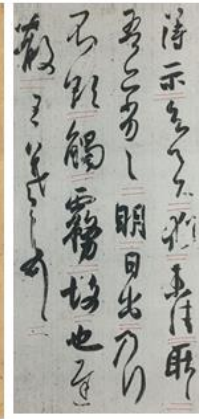 得示知足下猶未佳耿耿
吾亦劣劣明日出乃行
不欲觸霧故也迟
散王羲之頓首